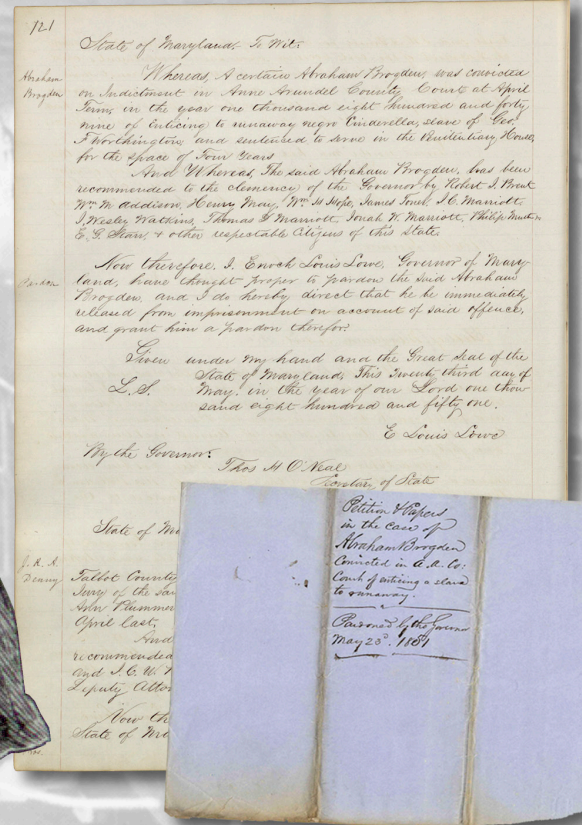 121
State of Maryland, To Wit:
Abraham
Brogden
Whereas, A certain Abraham Brogden, was convicted
on Indictment in Anne Arundel County Court at April
Term, in the year one thousand eight hundred and forty
nine of enticing to runaway negro Cinderella, slave of Geo.
F Worthington, and sentenced to serve in the Penitentiary House,
for the space of Four Years
And Whereas, The said Abraham Brogden, has been
recommended to the clemency of the Governor by Robert J. Brent
Wm. M Addison, Henry May, Wm H Hope, James Jones, J. C. Marriott
J, Wesley Watkins, Thomas G Marriott, Jonah W. Marriott, Philip
E. G. Starr, & other respectable Citizens of this State.
Pardon
Now therefore, I. Enoch Louis Lowe, Governor of Mary
land, have thought proper to pardon the said Abraham
Brogden, and I do hereby direct that he be immediately
released from imprisonment on account of said offence,
and grant him a pardon therefor:
Given under my hand and the Great Seal of the
State of Maryland, This Twenty third day of
L. S. May. in the year of our Lord one thou
sand eight hundred and fifty one.
E Louis Lowe
By the Governor.
Thos H O'Neal
Secretary of State
State of
J. R. A.
Denny
Talbot County
Jury of the
Ann Plummer
April last.
And
recommended
and J. C. W.
Deputy
Now
State of
Petition & Papers
in the case of
Abraham Brogden
Convicted in A. A. Co:
Court of enticing a slave
to runaway.
Pardoned by the Governor
May 23d. 1851